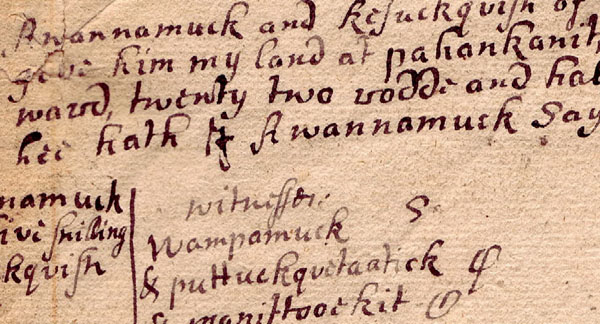 Awannamuck and Kesuckquish of
give him my land at pahonkanit,
ward, twenty two rodde and hal
hee hath I Awannamuck Say
witnesses
namuck
ive shilling
kquish
Wampamuck S
& puttuckquetaatick
& manittooekit